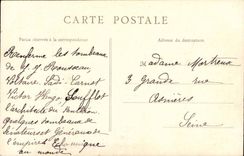 CARTE POSTALE
Partie réservée à la correspondance
Adresse du destinataire
Renferme les tombeaux
de J J Rousseau
Voltaire Sadi Carnot
Victor Hugo Soufflot
l'architecte du Panthéon
quelques tombeaux de
sénateurs et Généraux de
l'empire
au monde
Madame Mortreux
3 Grande rue
Asnières
Seine